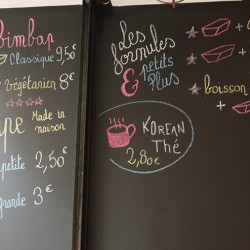 bimbap
Classique 9,50€
végétarien 8€
pe Made in
maison
petite 2,50€
grande 3€
Les
formules
& petits
plus
+
boisson
+
KOREAN
Thé
2,80€